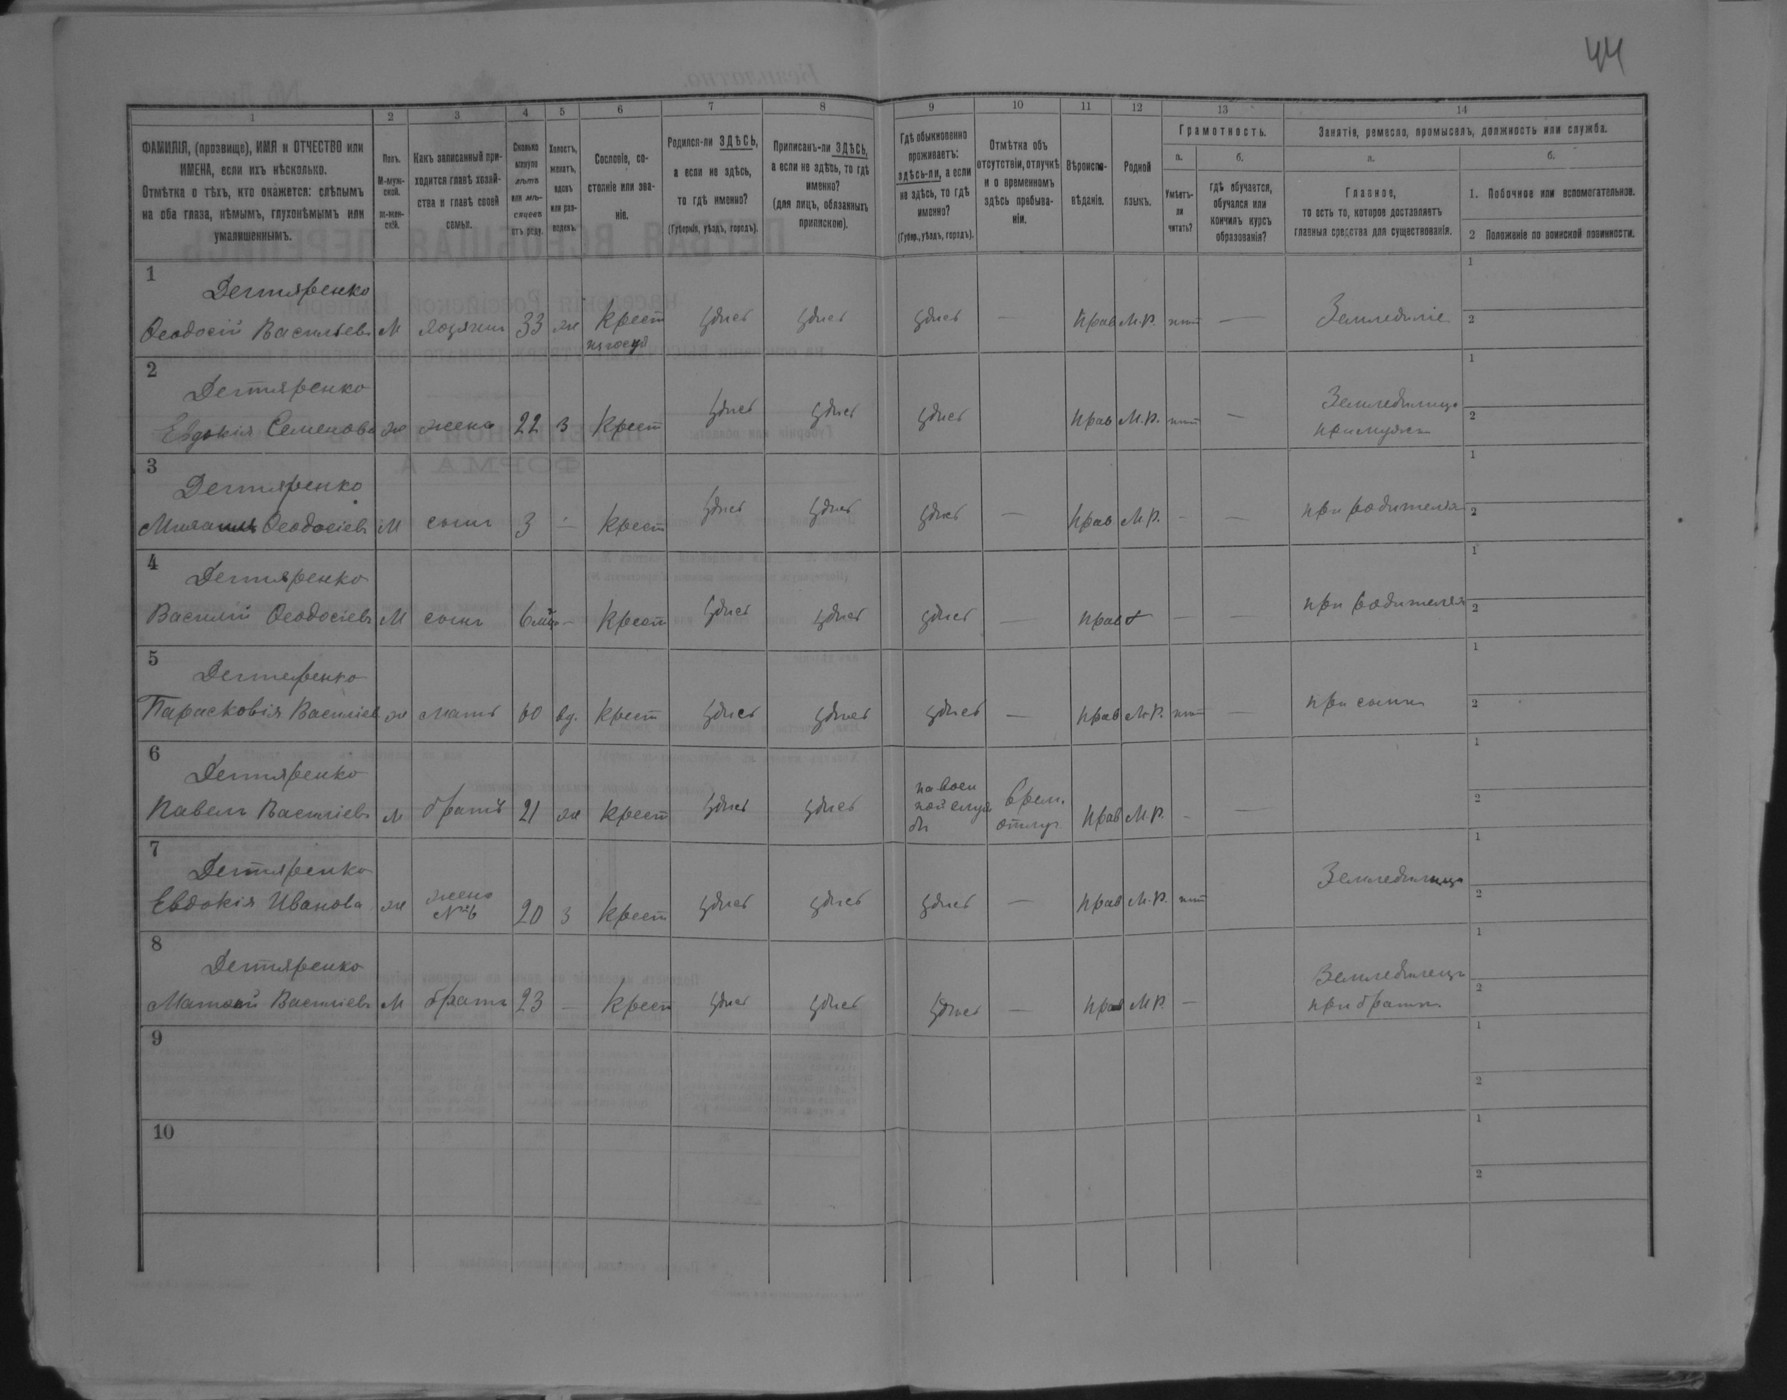 44
1 2 3 4 5 6 7 8 9 10 11 12 13 14
ФАМИЛІЯ, (прозвище), ИМЯ и ОТЧЕСТВО или
ИМЕНА, если ихъ нѣсколько.
Отмѣтка о тѣхъ, кто окажется: слѣпымъ
на оба глаза, нѣмымъ, глухонѣмымъ или
умалишеннымъ.
Полъ.
М-муж-
ской.
ж-жен-
скій.
Какъ записанный при-
ходится главѣ хозяй-
ства и главѣ своей
семьи.
Сколько
минуло
лѣтъ
или мѣ-
сяцевъ
отъ роду.
Холостъ,
женатъ,
вдовъ
или раз-
веденъ.
Сословіе, со-
стояніе или зва-
ніе.
Родился-ли ЗДѢСЬ,
а если не здѣсь,
то гдѣ именно?
(Губернія, уѣздъ, городъ).
Приписанъ-ли ЗДѢСЬ,
а если не здѣсь, то гдѣ
именно?
(для лицъ, обязанныхъ
припискою).
Гдѣ обыкновенно
проживаетъ:
здѣсь-ли, а если
не здѣсь, то гдѣ
именно?
(Губер., уѣздъ, городъ).
Отмѣтка объ
отсутствіи, отлучкѣ
и о временномъ
здѣсь пребыва-
ніи.
Вѣроиспо-
вѣданіе.
Родной
языкъ.
Грамотность.
а.
Умѣетъ-
ли
читать?
б.
гдѣ обучается,
обучался или
кончилъ курсъ
образованія?
Занятія, ремесло, промыселъ, должность или служба.
а.
Главное,
то есть то, которое доставляетъ
главныя средства для существованія.
б.
1. Побочное или вспомогательное.
2 Положеніе по воинской повинности.
1
Дегтяренко
Ѳеодосій Васильевъ М хозяинъ 33 ж крест здѣсь здѣсь здѣсь — прав М.р. нѣт — Земледѣліе
1
2
2
Дегтяренко
Евдокія Семенова ж жена 22 з крест здѣсь здѣсь здѣсь прав М.р. нѣт — Земледѣлица
при мужѣ
1
2
3
Дегтяренко
Ѳеодосіевъ М сынъ 3 — крест здѣсь здѣсь здѣсь — прав М.р. — — при родителяхъ
1
2
4
Дегтяренко
Василій Ѳеодосіевъ М сынъ — крест здѣсь здѣсь здѣсь — прав — — при родителяхъ
1
2
5
Дегтяренко
Парасковія Василіев ж мать 60 вд. крест здѣсь здѣсь здѣсь — прав М.р. нѣт — при сынѣ
1
2
6
Дегтяренко
Павелъ Василіевъ м братъ 21 ж крест здѣсь здѣсь на воен
ной служ
бѣ врем.
отлуч. прав М.р. - —
1
2
7
Дегтяренко
Евдокія Иванова ж жена
№6 20 з крест здѣсь здѣсь здѣсь — прав М.р. нѣт Земледѣлица
1
2
8
Дегтяренко
Василіевъ М братъ 23 — крест здѣсь здѣсь здѣсь — прав М.р. — Земледѣлецъ
при братѣ
1
2
9
1
2
10
1
2